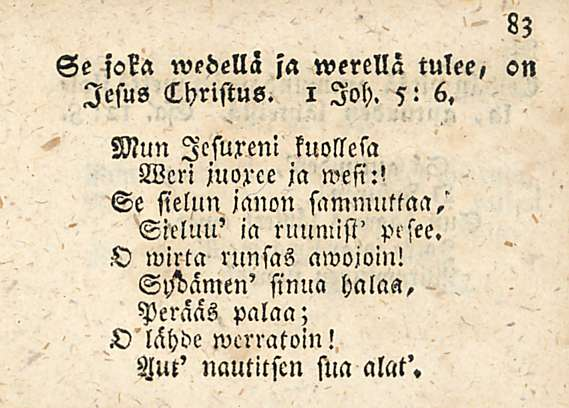 83
Se joka wedellä ja werellä tulee, on
Jesus Christus. 1 Joh. 5: 6.
Mun Jesuxeni kuollesa
Weri juoxee ja wesi:!
Se sielun janon sammuttaa,
Sieluu' ja ruumist' pesee.
O wirta runsas awojoin!
Sydämen' sinua halaa,
Perääs palaa;
O lähde werratoin!
Aut' nautitsen sua alat'.